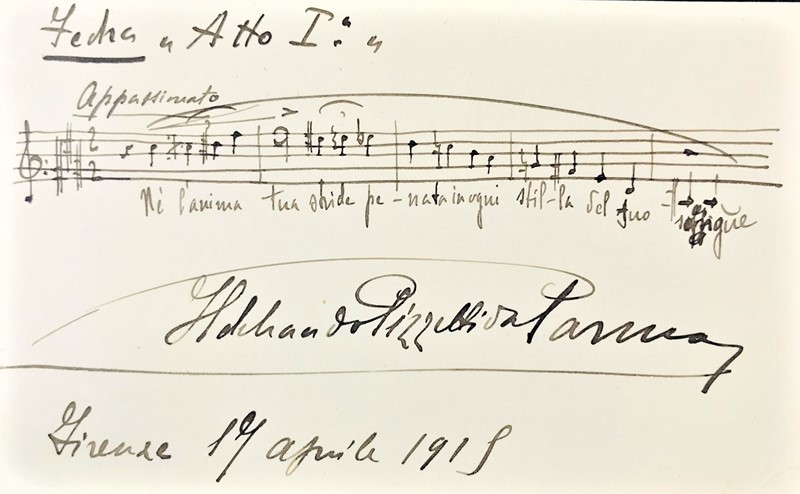 Fedra „ Atto I.º „
Appassionato
Nè l'anima tua stride pe-nata in ogni stil-la del tuo sangue
Ildebrando Pizzetti da Parma
Firenze 17 aprile 1915